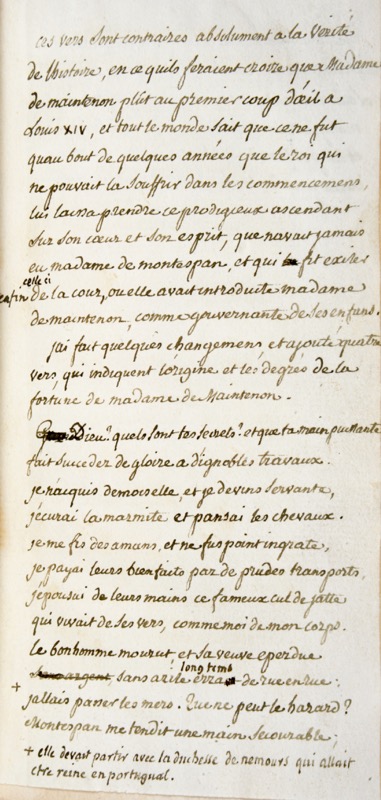 ces vers sont contraires absolument a la verité
de l'histoire, en ce quils feraient croire que Madame
de maintenon plût au premier coup d'œil a
Louis XIV, et tout le monde sait que ce ne fut
quau bout de quelques années que le roi qui
ne pouvait la souffrir dans les commencemens,
lui laissa prendre ce prodigieux ascendant
sur son cœur et son esprit, que n'avait jamais
eu madame de montespan, et qui fit exiler
celle ci
enfin de la cour, ou elle avait introduite madame
de maintenon, comme gouvernante de ses enfans.
j'ai fait quelques changemens, et ajouté quatre
vers, qui indiquent l'origine et les degrés de la
fortune de madame de Maintenon.
Dieu! quels sont tes secrets? et que ta main puissante
fait succeder de gloire a d'ignobles travaux.
je naquis demoiselle, et je devins servante,
j'écurai la marmite et pansai les chevaux.
je me fis des amans, et ne fus point ingrate,
je payai leurs bienfaits par de prudes transports,
j'épousai de leurs mains ce fameux cul de jatte
qui vivait de ses vers, comme moi de mon corps.
le bonhomme mourut et sa veuve eperdue
long tems
sans argent, sans azile erra de rue en rue;
+ j'allais passer les mers. Que ne peut le hazard?
Montespan me tendit une main secourable;
+ elle devait partir avec la duchesse de nemours qui allait
etre reine en portugal.